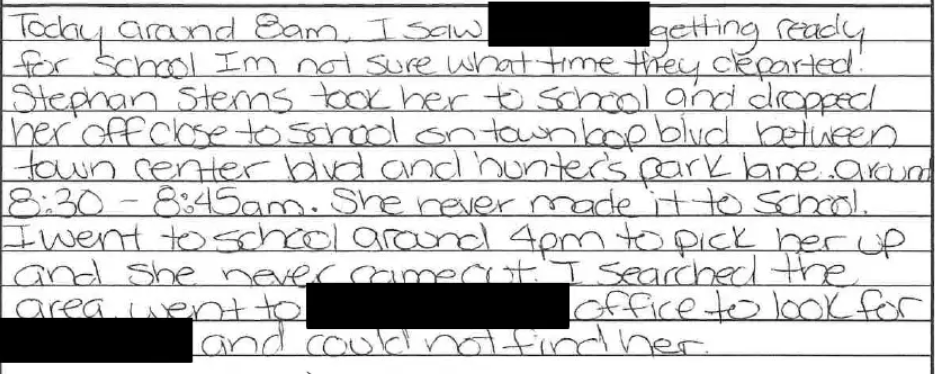 Today around 8am, I saw getting ready
for school Im not sure what time they departed.
Stephan Sterns took her to school and dropped
her off close to school on town loop blvd between
town center blvd and hunter's park lane. around
8:30 - 8:45am. She never made it to school.
I went to school around 4pm to pick her up
and she never came out. I searched the
area, went to office to look for
and could not find her.